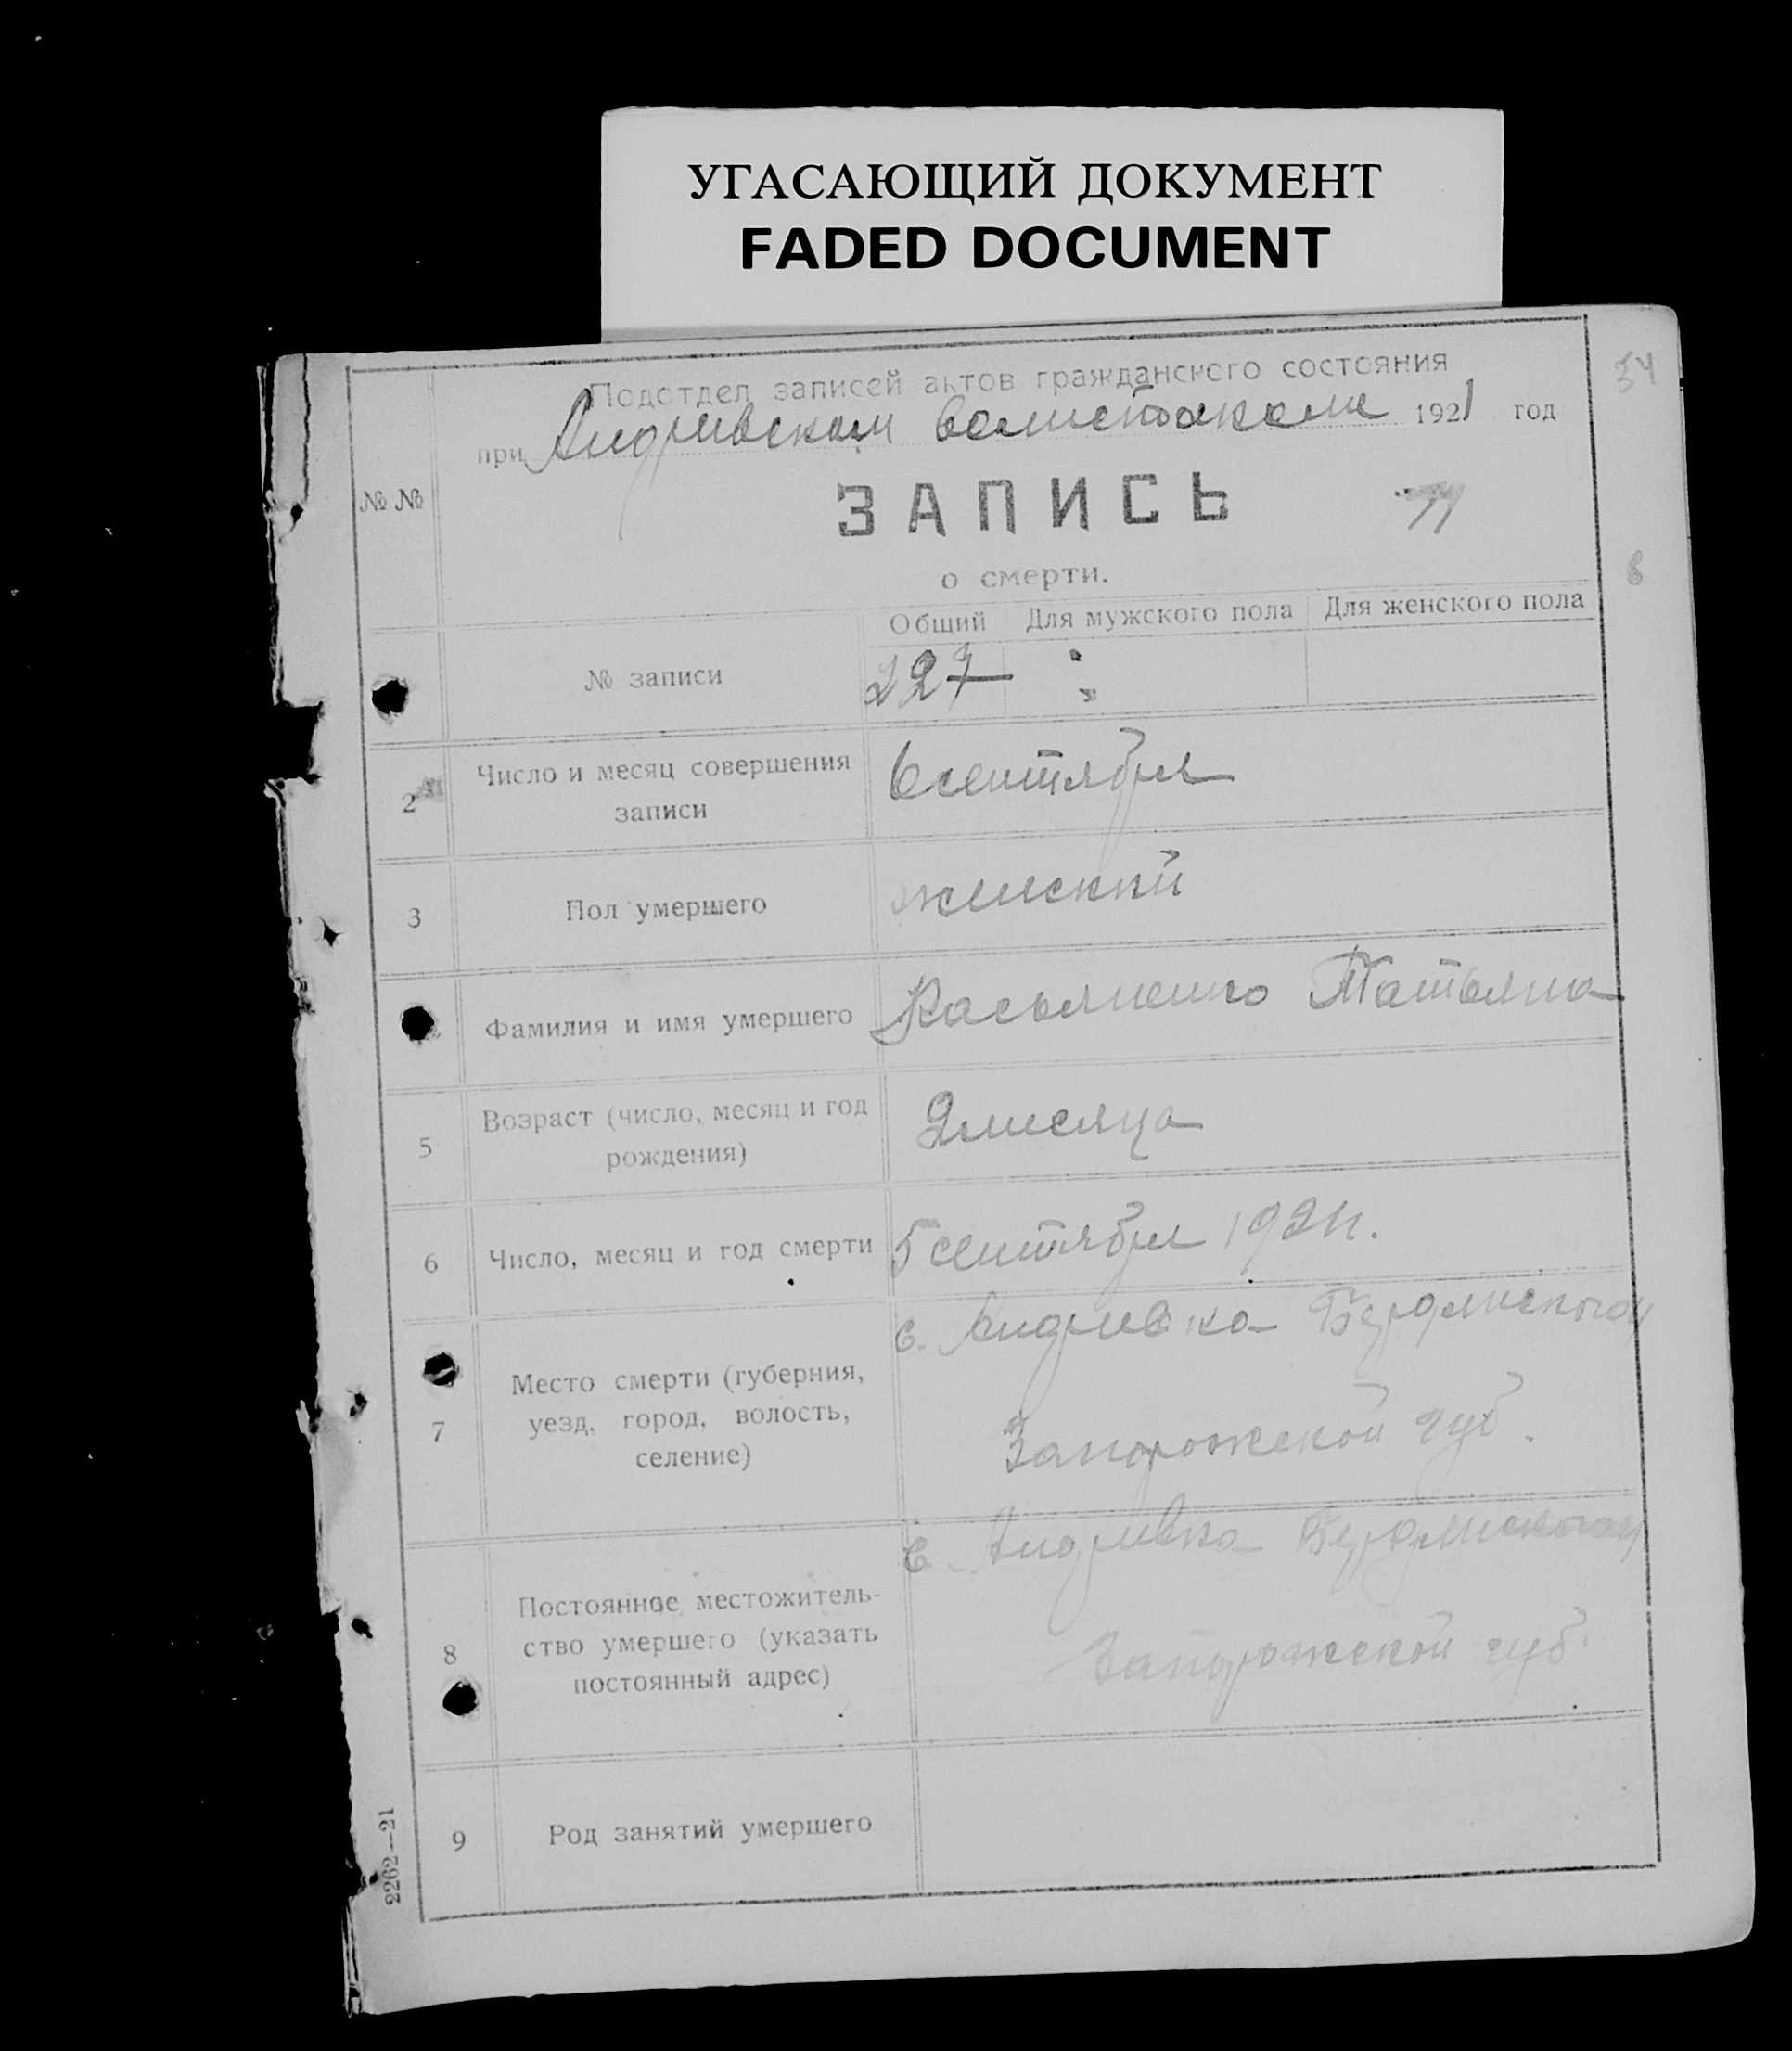 УГАСАЮЩИЙ ДОКУМЕНТ
FADED DOCUMENT
34
Подотдел записей актов гражданского состояния
при Андреевском волисполкоме 1921 год
№ №
ЗАПИСЬ
о смерти.
8
Общий Для мужского пола Для женского пола
№ записи 227
2 Число и месяц совершения
записи
6 сентября
3 Пол умершего женский
Фамилия и имя умершего Касьяненко Татьяна
5 Возраст (число, месяц и год
рождения)
2 месяца
6 Число, месяц и год смерти 5 сентября 1921 г.
с. Андреевка Бердянского у
7 Место смерти (губерния,
уезд, город, волость,
селение)
Запорожской губ.
с. Андреевка Бердянского у
8 Постоянное местожитель-
ство умершего (указать
постоянный адрес)
Запорожской губ.
9 Род занятий умершего
2262—21